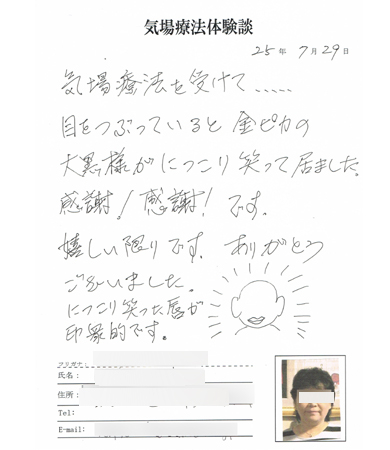 気場療法体験談
25年 7月 29日
気場療法を受けて.....
目をつぶっていると金ピカの
大黒様がにっこり笑って居ました。
感謝！感謝！です。
嬉しい限りです。ありがとう
ございました。
にっこり笑った唇が
印象的です。
フリガナ:
氏名:
住所:
Tel:
E-mail: